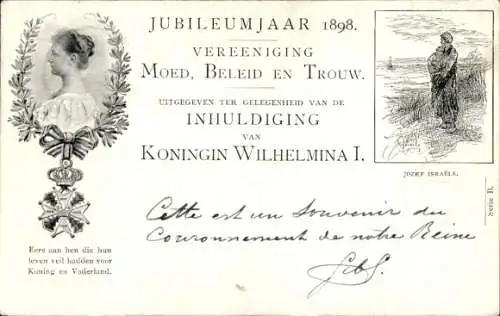 JUBILEUMJAAR 1898.
VEREENIGING
MOED, BELEID EN TROUW.
UITGEGEVEN TER GELEGENHEID VAN DE
INHULDIGING
VAN
KONINGIN WILHELMINA I.
JOZEF ISRAËLS.
Serie B.
Eere aan hen die hun
leven veil hadden voor
Koning en Vaderland.
Cette est un Souvenir du
Couronnement de notre Reine